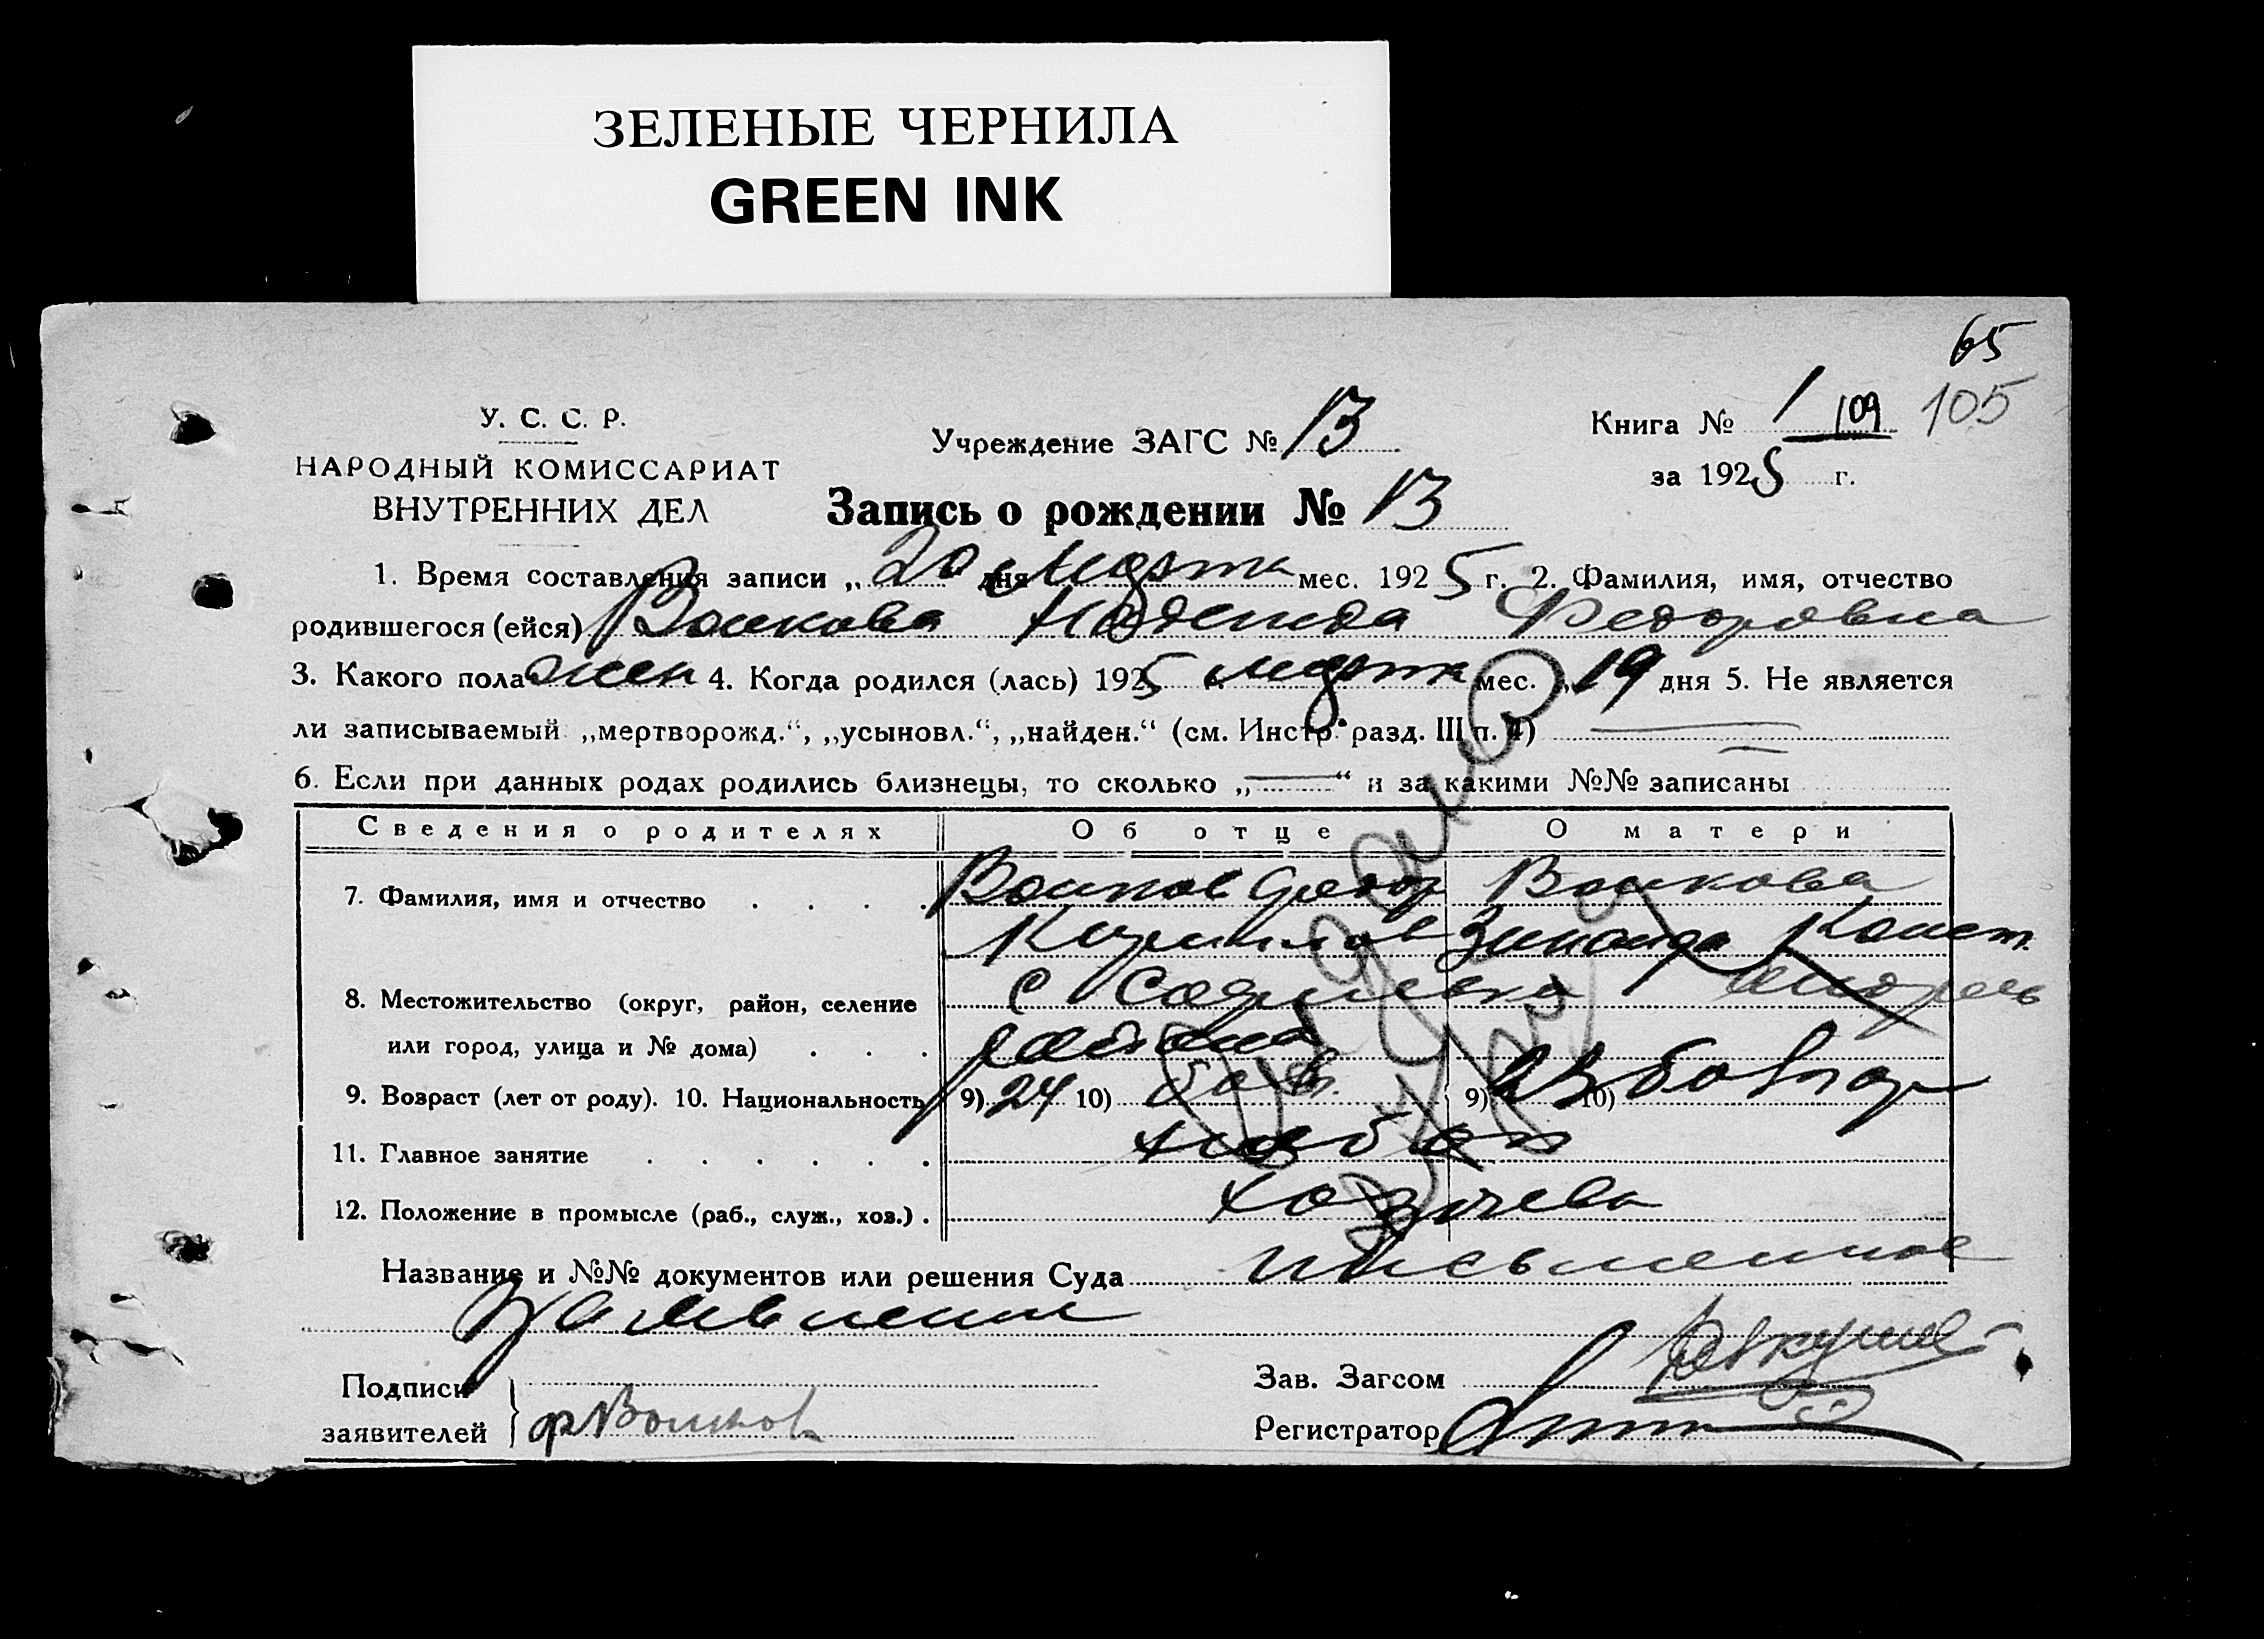 ЗЕЛЕНЫЕ ЧЕРНИЛА
GREEN INK
65
У. С. С. Р.
НАРОДНЫЙ КОМИССАРИАТ
ВНУТРЕННИХ ДЕЛ
Учреждение ЗАГС № 13
Книга № 1 109 105
за 1925 г.
Запись о рождении № 13
1. Время составления записи „20“ дня Марта мес. 1925 г. 2. Фамилия, имя, отчество
родившегося (ейся) Волкова Надежда Федоровна
3. Какого пола жен 4. Когда родился (лась) 1925 марта мес. „19 дня 5. Не является
ли записываемый „мертворожд.“, „усыновл.“, „найден.“ (см. Инстр. разд. III п. 4)
6. Если при данных родах родились близнецы, то сколько „—“ и за какими №№ записаны
Сведения о родителях Об отце О матери
7. Фамилия, имя и отчество . . . . Волков Федор Волкова
Кирилов Зинаида Конст.
8. Местожительство (округ, район, селение с
или город, улица и № дома) . . .
9. Возраст (лет от роду). 10. Национальность 9) 24 10) 9) 23 10)
11. Главное занятие . . . . . . хлебоп
12. Положение в промысле (раб., служ., хоз.) .
Название и №№ документов или решения Суда письменное
Заявление
Подписи
заявителей ФВолков
Зав. Загсом
Регистратор